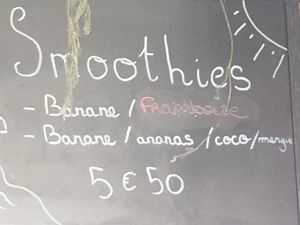 Smoothies
- Banane / Framboise
- Banane / ananas / coco / mangue
5 € 50